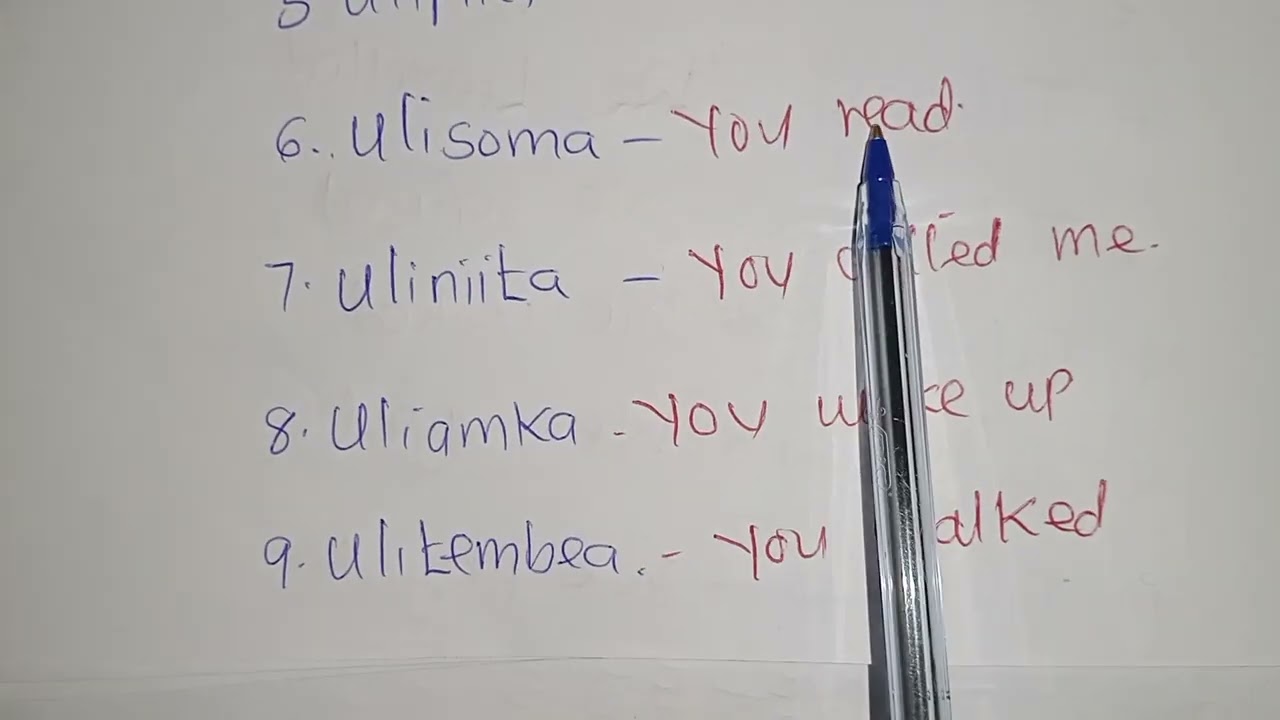 6. Ulisoma - You read.
7. Uliniita - You called me.
8. Uliamka - You woke up
9. Ulitembea. - You walked